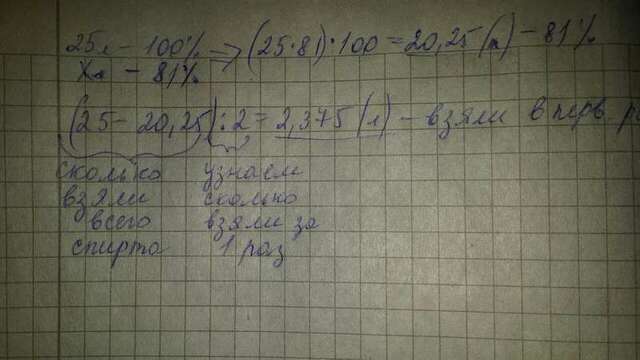 25л - 100% => (25·81):100 = 20,25 (л) - 81%
Xл - 81%
(25 - 20,25) : 2 = 2,375 (л) - взяли в перв
сколько узнаем
взяли сколько
всего взяли за
спирта 1 раз